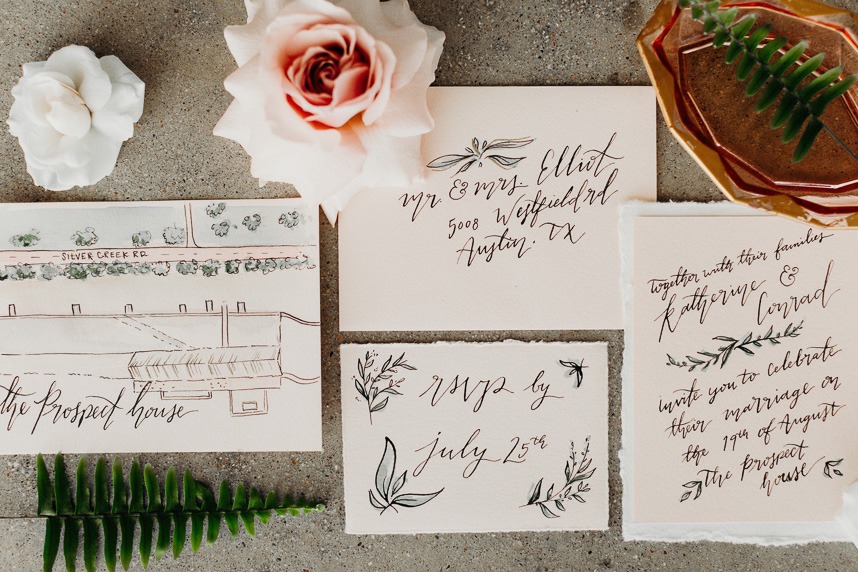 SILVER CREEK RD
the Prospect house
mr. & mrs. Elliot
5008 Westfield rd
Austin, TX
rsvp by
july 25th
together with their families
Katherine &
Conrad
invite you to celebrate
their marriage on
the 19th of August
the Prospect
house